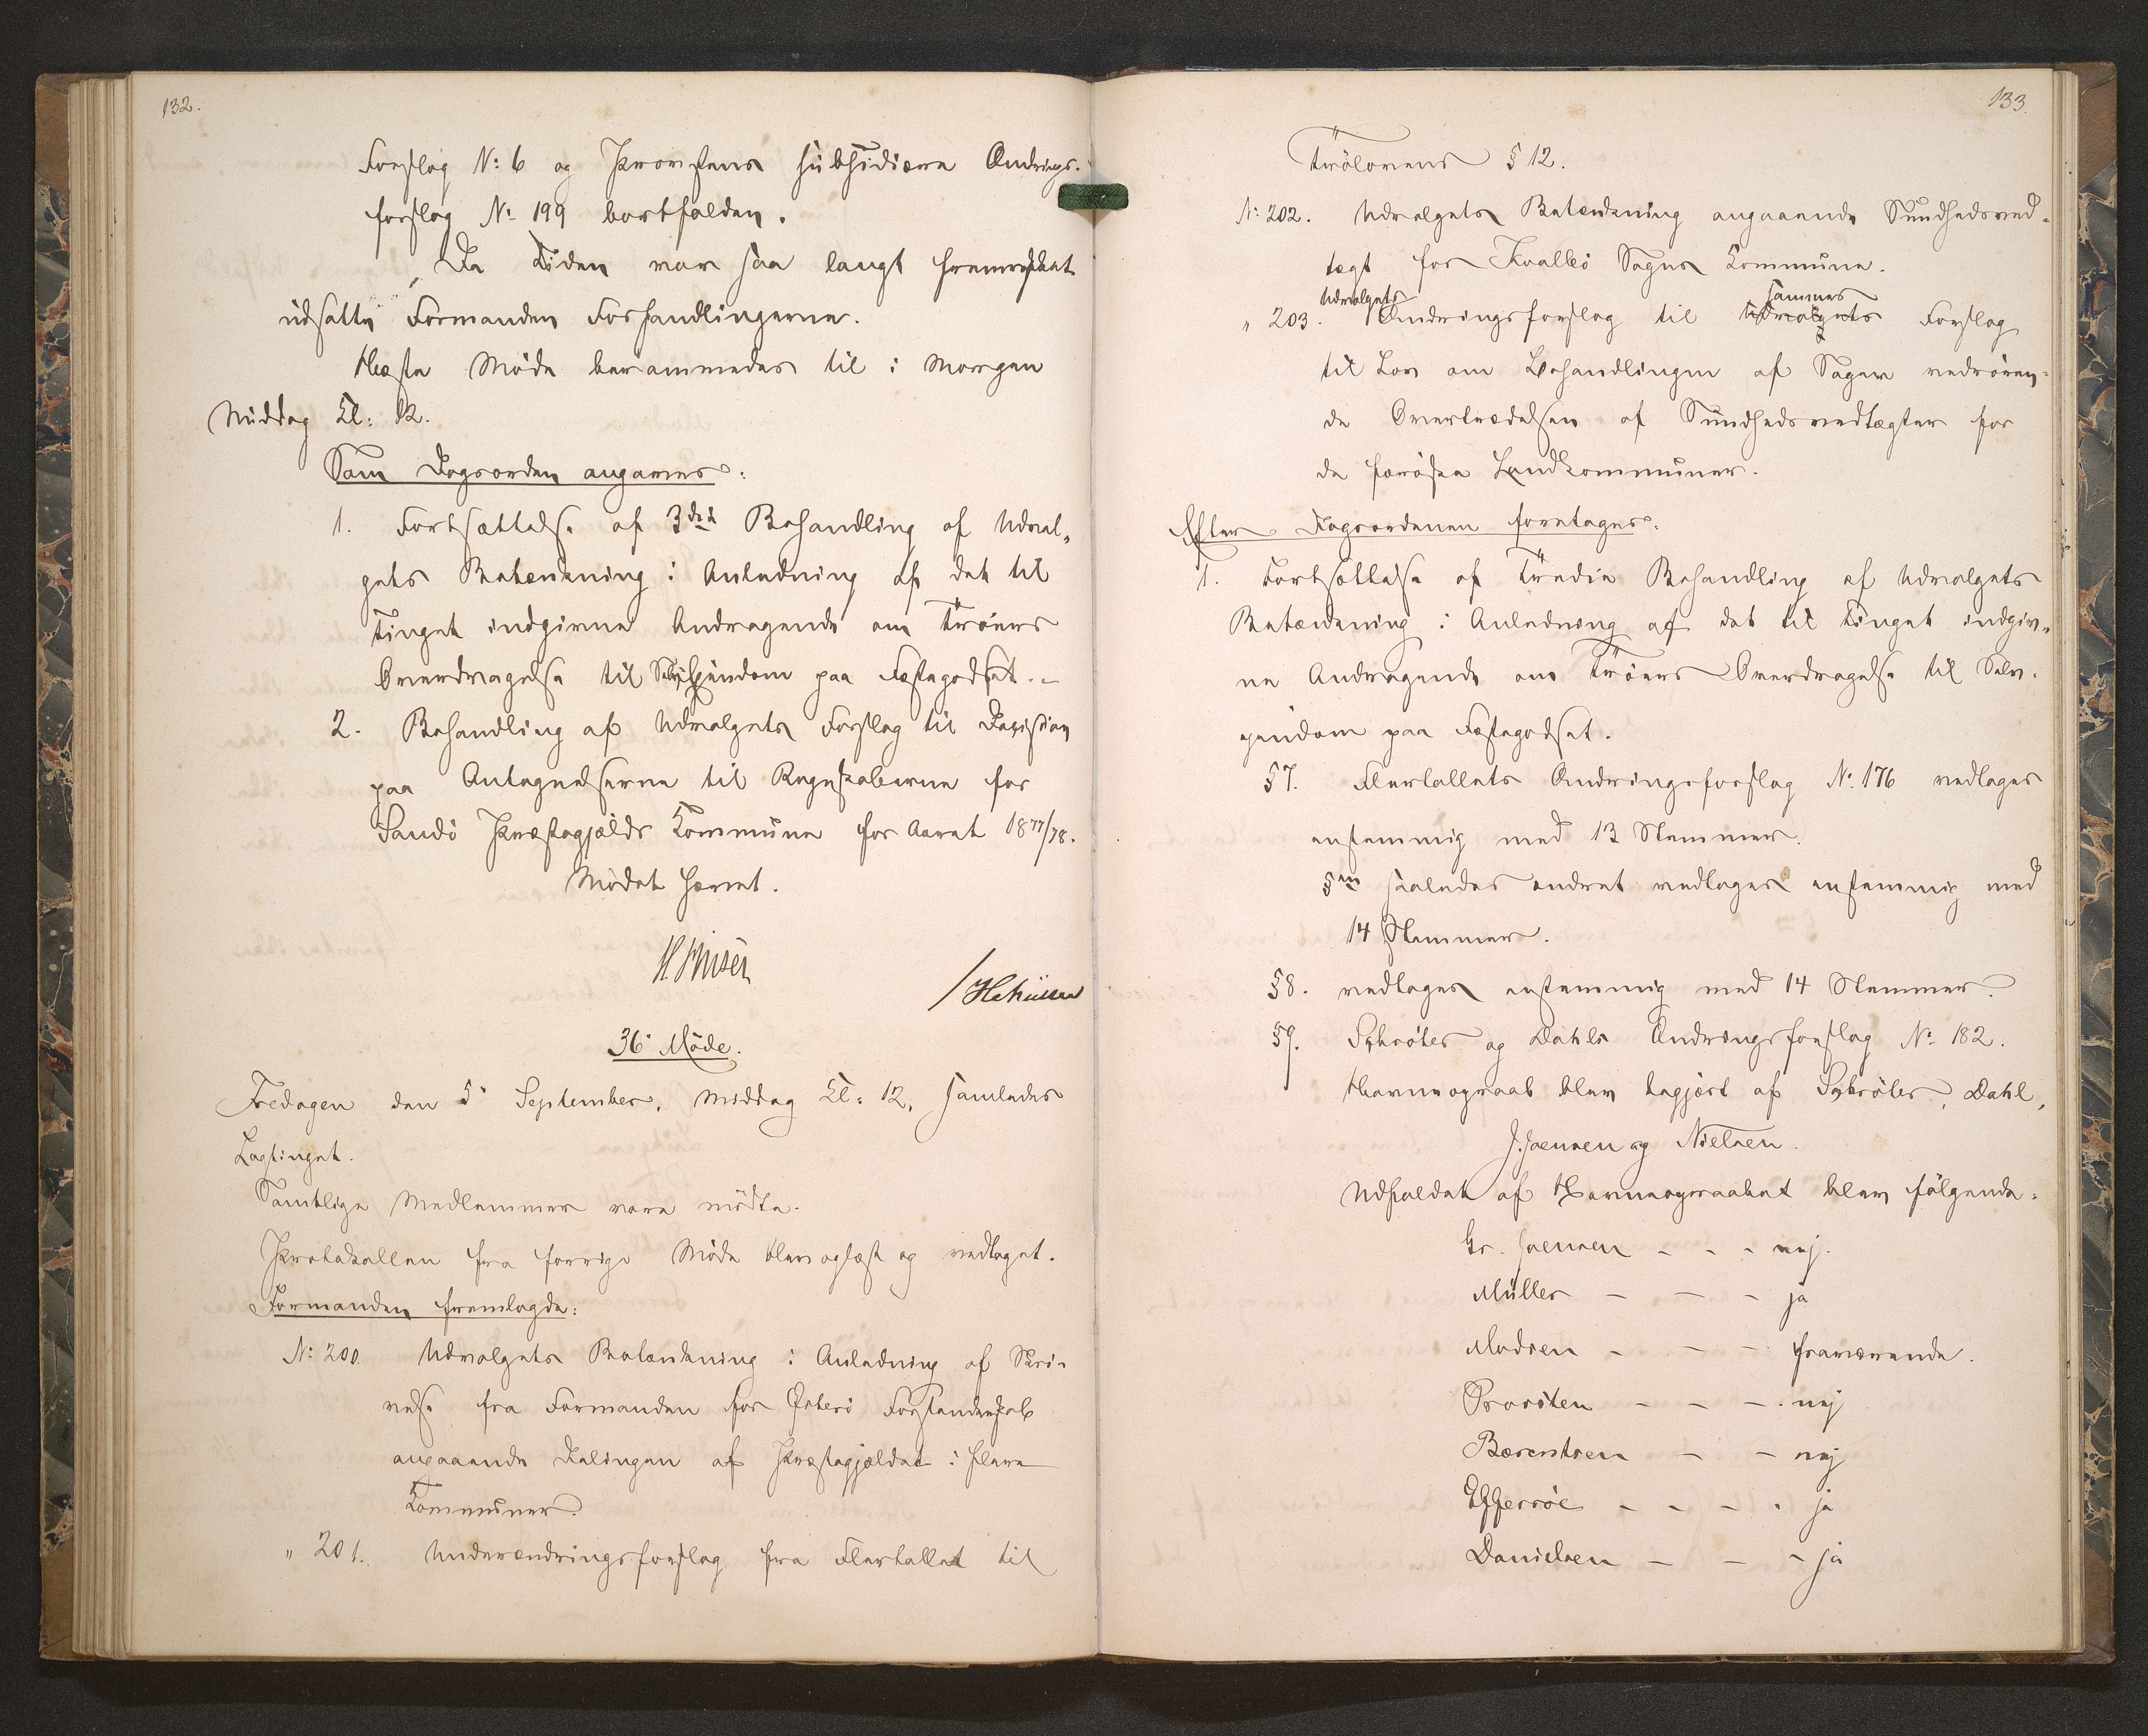 132.
Forslag No: 6 og Provstens subsidiære Ændrings-
forslag No 199 bortfalden.
Da Tiden var saa langt fremrykket
udsatte Formanden Forhandlingerne.
Næste Møde berammedes til i Morgen
Middag Kl: 12.
Som Dagsorden angaves:
1. Fortsættelse af 3die Behandling af Udval-
gets Betænkning i Anledning af det til
Tinget indgivne Andragende om Færøernes
Overdragelse til Selvejendom paa Fæstegodset.-
2. Behandling af Udvalgets Forslag til Decision
paa Antegnelserne til Regnskaberne for
Sandø Præstegjælds Kommune for Aaret 1877/78.
Mødet hævet.
36' Møde.
Fredagen den 5' September, Middag Kl: 12, samledes
Lagtinget.
Samtlige Medlemmer vare mødte.
Protokollen fra forrige Møde blev oplæst og vedtaget.
Formanden fremlagde:
No: 200. Udvalgets Betænkning i Anledning af Skri-
velse fra Formanden for Østerø Forstanderskab
angaaende Delingen af Præstegjældet i flere
Kommuner.
" 201. Underændringsforslag fra Flertallet til
133.
§ 12.
No: 202. Udvalgets Betænkning angaaende Sundhedsved-
tægt for Kvalbø Sogns Kommune.
Udvalgets sammes
" 203. Ændringsforslag til Udvalgets Forslag
til Lov om Behandlingen af Sager vedrøren-
de Overtrædelsen af Sundhedsvedtægter for
de færøske Landkommuner.
Efter Dagsordenen foretages:
1. Fortsættelse af Tredie Behandling af Udvalgets
Betænkning i Anledning af det til Tinget indgiv-
ne Andragende om Overdragelse til Selv-
ejendom paa Fæstegodset.
§7. Flertallets Ændringsforslag No: 176 vedtages
enstemmig med 13 Stemmer.
§en saaledes ændret vedtages enstemmig med
14 Stemmer.
§8. vedtages enstemmig med 14 Stemmer.
§9. Schrøter og Dahls Ændringsforslag No: 182.
Navneopraab blev begjært af Schrøter, Dahl,
J. Joensen og Nielsen.
Udfaldet af Navneopraabet blev følgende:
Gr. Joensen - - - nej.
Müller - - - ja
Madsen - - - fraværende.
Provsten - - - nej
Bærentsen - - nej
Effersöe - - - - ja
Danielsen - - - ja